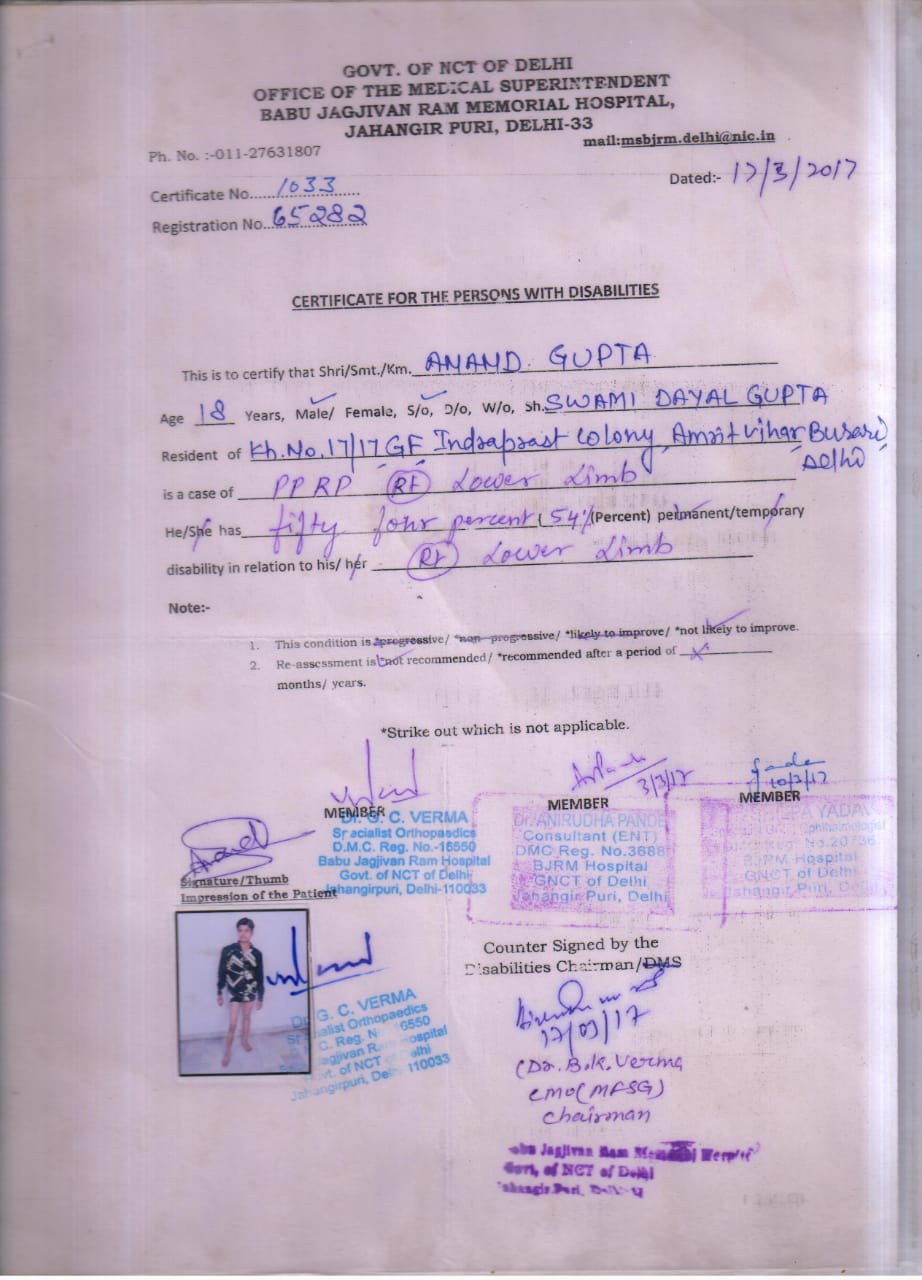 GOVT. OF NCT OF DELHI
OFFICE OF THE MEDICAL SUPERINTENDENT
BABU JAGJIVAN RAM MEMORIAL HOSPITAL,
JAHANGIR PURI, DELHI-33
mail:msbjrm.delhi@nic.in
Ph. No. :-011-27631807
Dated:- 17/3/2017
Certificate No......1033..............
Registration No...65282
CERTIFICATE FOR THE PERSONS WITH DISABILITIES
This is to certify that Shri/Smt./Km. ANAND. GUPTA
Age 18 Years, Male/ Female, S/o, D/o, W/o, Sh. SWAMI DAYAL GUPTA
Resident of Kh.No.17/17 GF, Indraprast Colony, Amrit Vihar Burari,
Delhi
is a case of PPRP Rt Lower Limb
He/She has fifty four percent ( 54% (Percent) permanent/temporary
disability in relation to his/ her Rt Lower Limb
Note:-
1. This condition is *progressive/ *non-progressive/ *likely to improve/ *not likely to improve.
2. Re-assessment is *not recommended/ *recommended after a period of X
months/ years.
*Strike out which is not applicable.
3/3/17
10/3/17
MEMBER
MEMBER
MEMBER
Dr. G. C. VERMA
Specialist Orthopaedics
D.M.C. Reg. No.-16550
Babu Jagjivan Ram Hospital
Govt. of NCT of Delhi
Jahangirpuri, Delhi-110033
Dr. ANIRUDHA PANDE
Consultant (ENT)
DMC Reg. No.3688
BJRM Hospital
GNCT of Delhi
Jahangir Puri, Delhi
YADAV
Ophthalmologist
Reg. No.20736
BJRM Hospital
GNCT of Delhi
Jahangir Puri, Delhi
Anand
Signature/Thumb
Impression of the Patient
Counter Signed by the
Disabilities Chairman/DMS
17/03/17
(Dr. B.K. Verma
CMO (MFSG)
Chairman
Dr. G. C. VERMA
Specialist Orthopaedics
D.M.C. Reg. No. 16550
Babu Jagjivan Ram Hospital
Govt. of NCT of Delhi
Jahangirpuri, Delhi 110033
Babu Jagjivan Ram Memorial Hospital
Govt. of NCT of Delhi
Jahangir Puri, Delhi